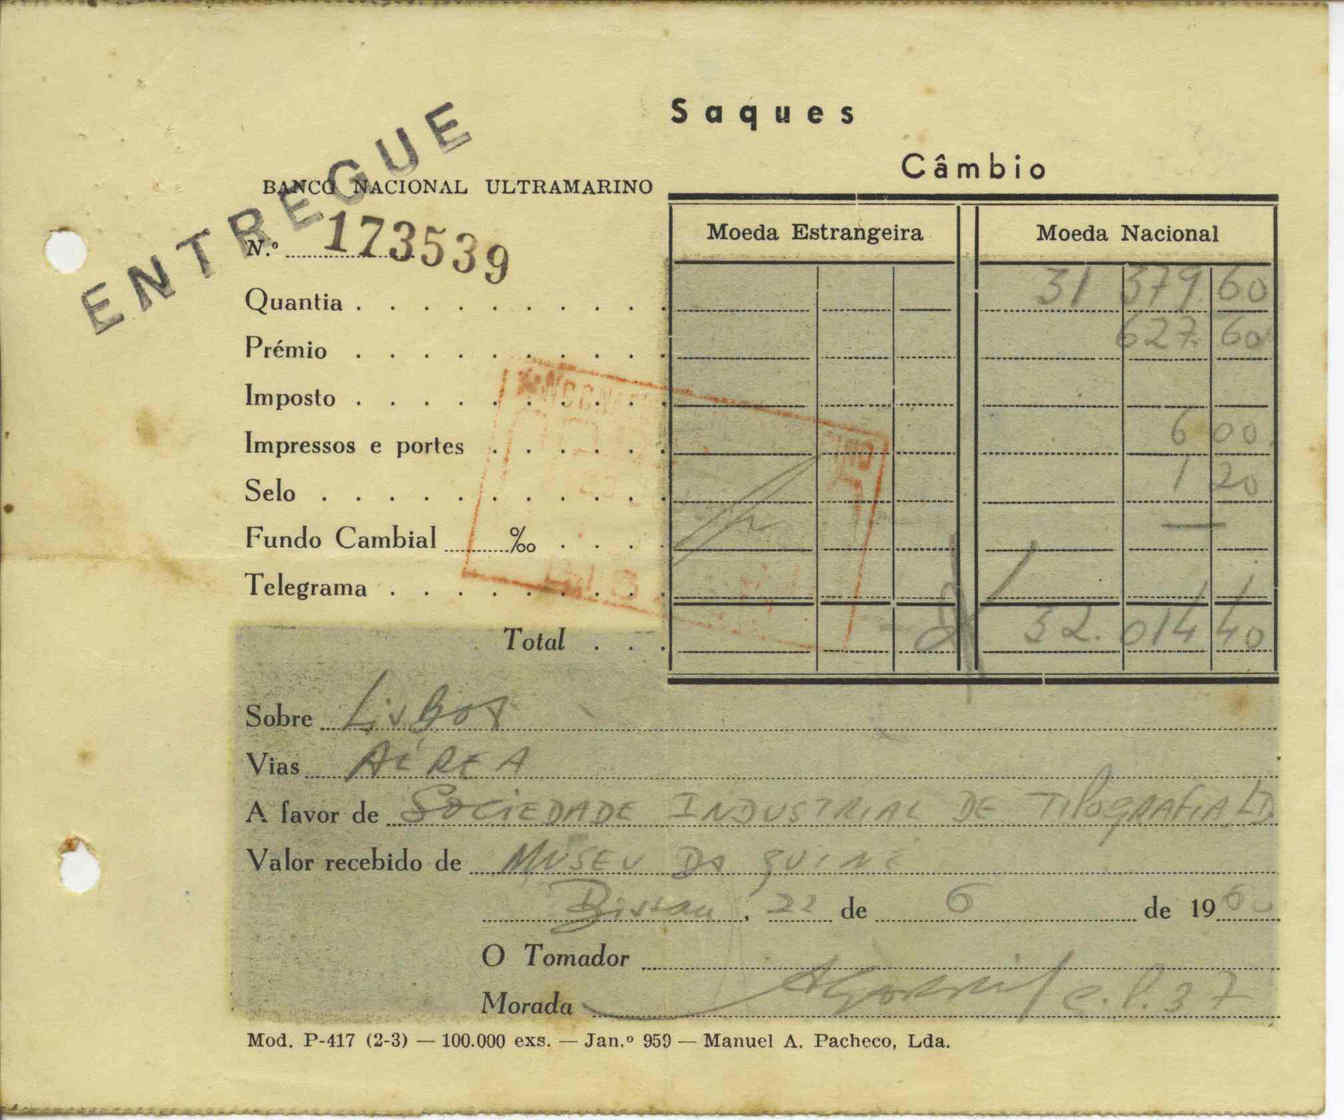 Saques
Câmbio
ENTREGUE
BANCO NACIONAL ULTRAMARINO
Moeda Estrangeira Moeda Nacional
N.º 173539
Quantia . . . . . . . . . . 31 379.60
Prémio . . . . . . . . . . 627.60
Imposto . . . . . . . . . .
Impressos e portes . . . . . . 6 00
Selo . . . . . . . . . . . 1 20
Fundo Cambial ‰ . . . . —
Telegrama . . . . . . . . .
Total . . . 32.014 40
Sobre Lisboa
Vias AÉREA
A favor de SOCIEDADE INDUSTRIAL DE TIPOGRAFIA LD.
Valor recebido de MUSEU DA GUINÉ
Bissau, 22 de 6 de 1960
O Tomador
Morada C.P. 37
Mod. P-417 (2-3) — 100.000 exs. — Jan.º 959 — Manuel A. Pacheco, Lda.